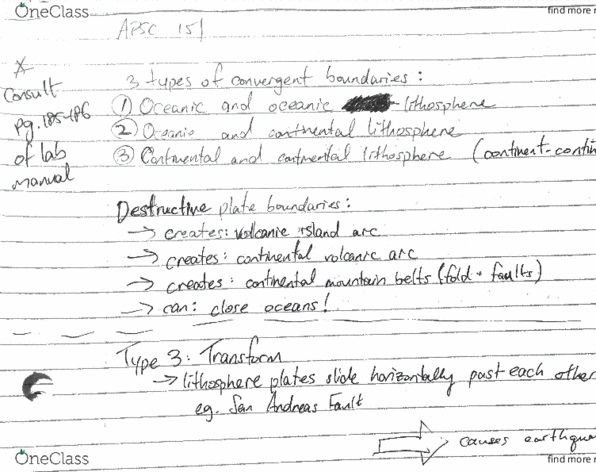 OneClass
find more
APSC 151
* Consult
pg. 185-186
of lab
manual
3 types of convergent boundaries:
① Oceanic and oceanic lithosphere
② Oceanic and continental lithosphere
③ Continental and continental lithosphere (continent-contin
Destructive plate boundaries:
→ creates: volcanic island arc
→ creates: continental volcanic arc
→ creates: continental mountain belts (fold + faults)
→ can: close oceans!
Type 3: Transform
→ lithosphere plates slide horizontally past each other
eg. San Andreas Fault
causes earthqua
OneClass
find more